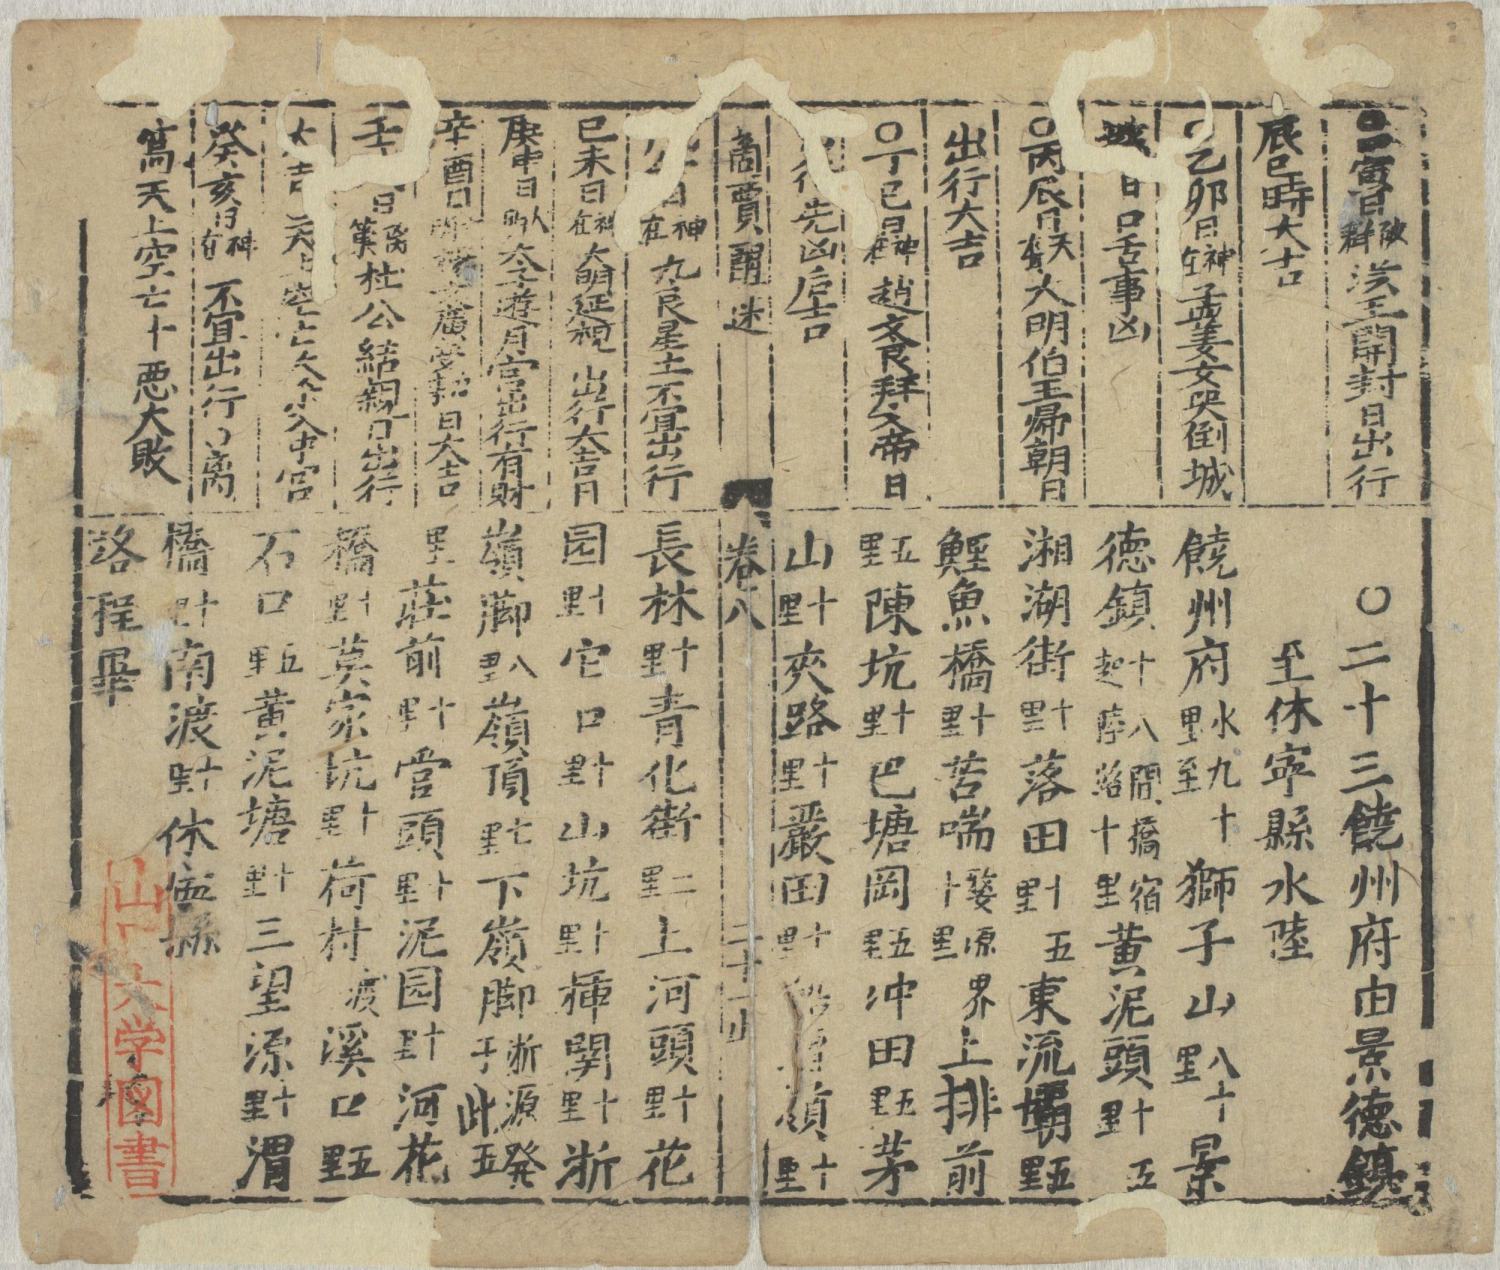 寅日
洪王開封日出行
辰巳時大吉
○乙卯日神在孟姜女哭倒城
城日口舌事凶
○丙辰日天大明伯王帰朝日
出行大吉
○丁巳日神在趙文良拜文帝日
行先凶后吉
日神在九良星土不宜出行
己未日神在大明延祝出行大吉日
庚申日人太子遊月宮出行有財
辛酉日受日大吉
壬日杜公結親日出行
大吉天上空亡入中宮
癸亥日神在不宜出行
為天上空亡十惡大敗
商賈醒迷
卷八
○二十三饒州府由景德鎮
至休寧縣水陸
饒州府水九十里至獅子山八十里景
德鎮十八間橋宿起陸路十里黃泥頭十里五
湘湖街十里落田十五里東流壩五里
鯉魚橋十里苦喘婺源界十里上排前
五里陳坑十里巴塘岡五里冲田五里茅
山十里夾路十里嚴田十里嶺十里
長林十里青化街二里上河頭十里花
园十里它口十里山坑十里揮関十里浙
嶺脚八里嶺頂七里下嶺脚浙源發于此五
里莊前十里営頭十里泥园十里河花
橋十里莫家坑十里荷村渡溪口五里
石口五里黃泥塘十里三望源十里渭
橋十里南渡十里休寧縣
路程畢
山口大学図書